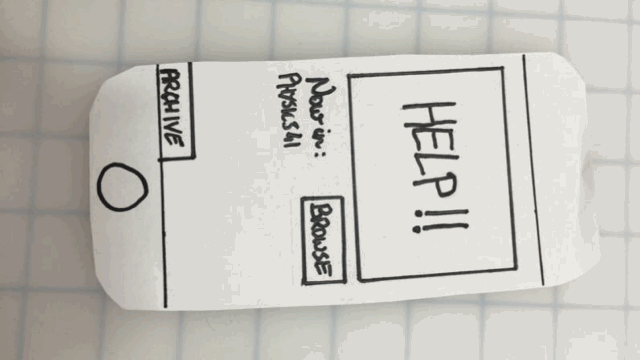 HELP!!
Now in:
Physics 41
BROWSE
ARCHIVE